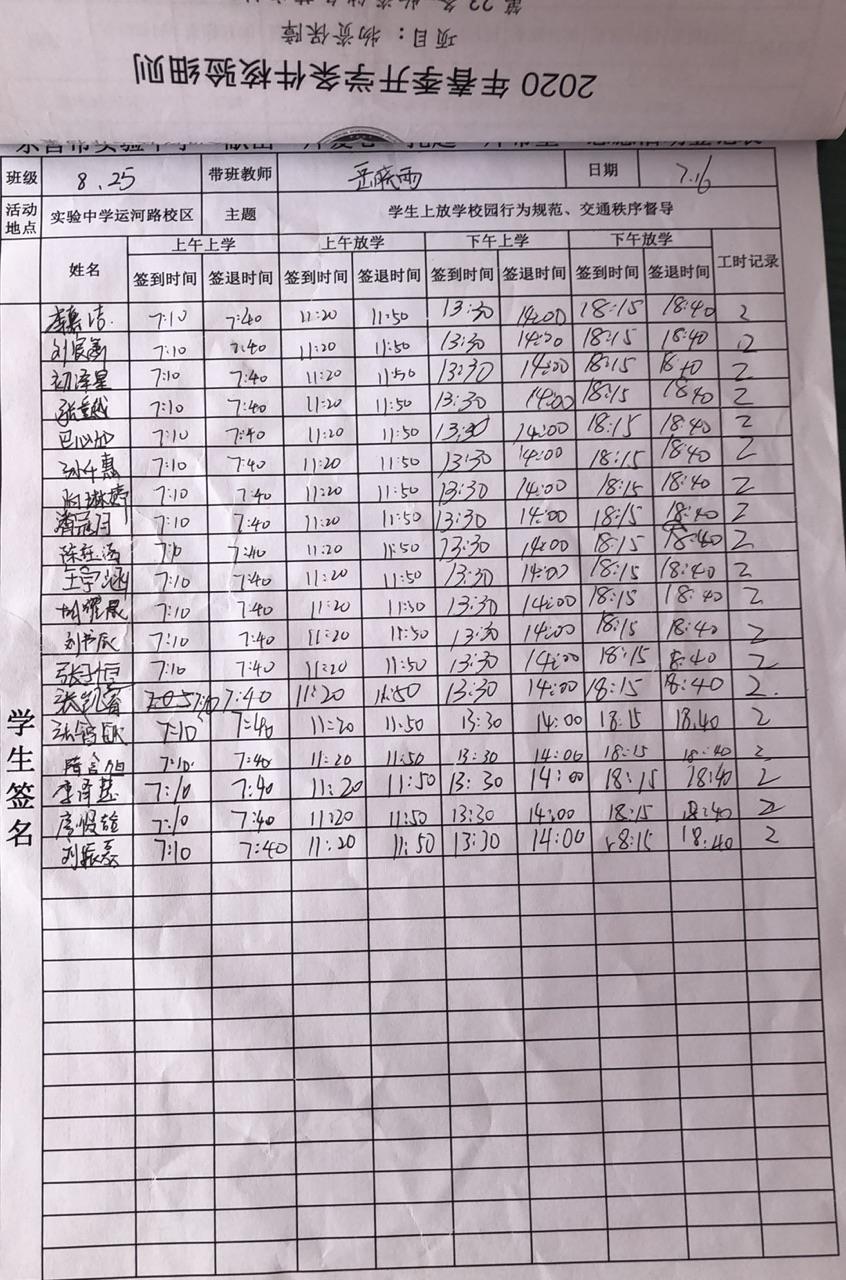 第22条
项目：物资保障
2020 年春季开学条件核验细则
班级 8.25 带班教师 岳晓雨 日期 7.16
活动地点 实验中学运河路校区 主题 学生上放学校园行为规范、交通秩序督导
姓名 上午上学 上午放学 下午上学 下午放学 工时记录
签到时间 签退时间 签到时间 签退时间 签到时间 签退时间 签到时间 签退时间
学生签名
7:10 7:40 11:20 11:50 13:30 14:00 18:15 18:40 2
7:10 7:40 11:20 11:50 13:30 14:00 18:15 18:40 2
初泽星 7:10 7:40 11:20 11:50 13:30 14:00 18:15 18:40 2
7:10 7:40 11:20 11:50 13:30 14:00 18:15 18:40 2
巴心怡 7:10 7:40 11:20 11:50 13:30 14:00 18:15 18:40 2
7:10 7:40 11:20 11:50 13:30 14:00 18:15 18:40 2
7:10 7:40 11:20 11:50 13:30 14:00 18:15 18:40 2
7:10 7:40 11:20 11:50 13:30 14:00 18:15 18:40 2
7:10 7:40 11:20 11:50 13:30 14:00 18:15 18:40 2
王宇涵 7:10 7:40 11:20 11:50 13:30 14:00 18:15 18:40 2
7:10 7:40 11:20 11:50 13:30 14:00 18:15 18:40 2
刘书辰 7:10 7:40 11:20 11:50 13:30 14:00 18:15 18:40 2
张子恒 7:10 7:40 11:20 11:50 13:30 14:00 18:15 8:40 2
张凯睿 7:10 7:40 11:20 11:50 13:30 14:00 18:15 18:40 2.
7:10 7:40 11:20 11:50 13:30 14:00 18:15 18.40 2
7:10 7:40 11:20 11:50 13:30 14:00 18:15 18:40 2
李泽慧 7:10 7:40 11:20 11:50 13:30 14:00 18:15 18:40 2
7:10 7:40 11:20 11:50 13:30 14:00 18:15 18:40 2
刘振磊 7:10 7:40 11:20 11:50 13:30 14:00 18:15 18:40 2